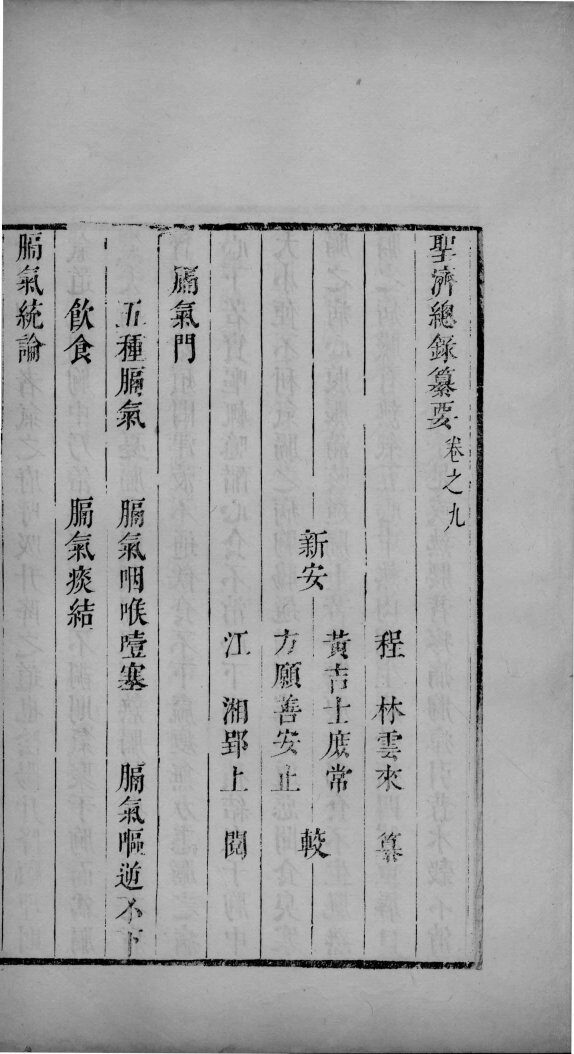 聖濟總錄纂要卷之九
程 林雲來 纂
新安
黃吉士庶常
方願善安止
較
江 湘郢上 閱
膈氣門
五種膈氣 膈氣咽喉噎塞 膈氣嘔逆不下
飲食 膈氣痰結
膈氣統論